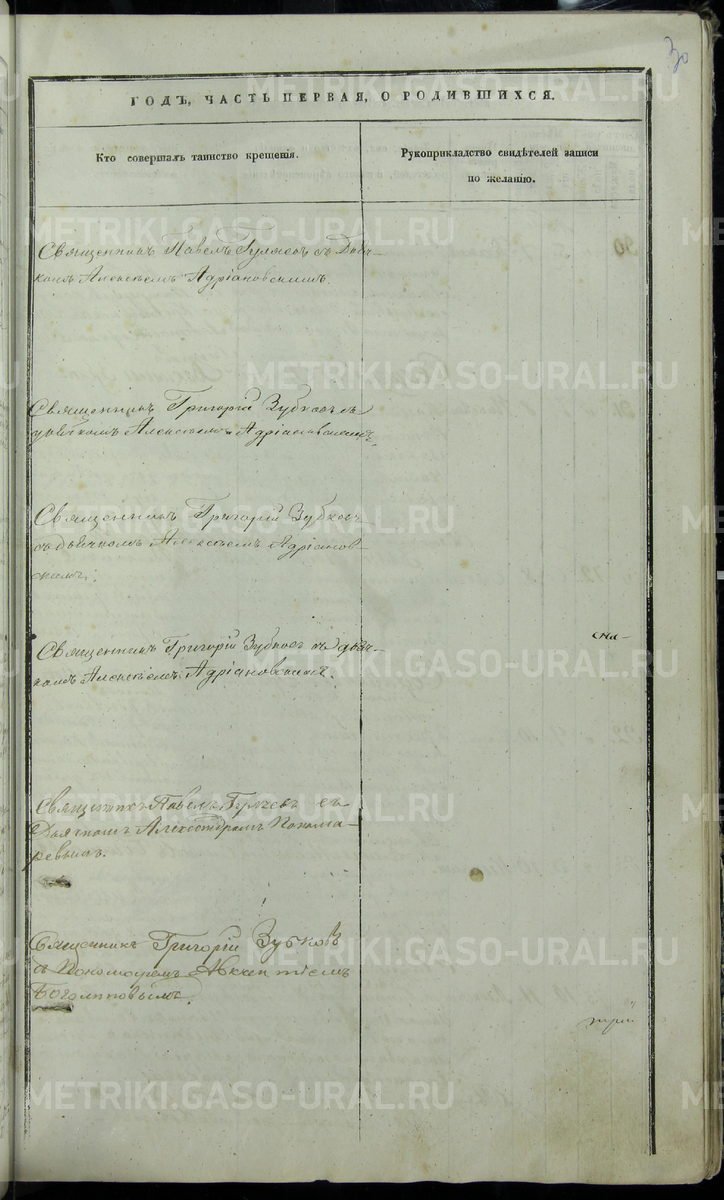 30
ГОДЪ, ЧАСТЬ ПЕРВАЯ, О РОДИВШИХСЯ.
Кто совершалъ таинство крещенія.
Рукоприкладство свидѣтелей записи
по желанію.
Священникъ Павелъ Гуляевъ съ Дьяч-
комъ Алексѣемъ Адріановскимъ.
Священникъ Григорій Зубковъ съ
дьячкомъ Алексѣемъ Адріановскимъ.
Священникъ Григорій Зубковъ
съ дьячкомъ Алексѣемъ Адріанов-
скимъ.
Священникъ Григорій Зубковъ съ дьяч-
комъ Алексѣемъ Адріановскимъ.
Священникъ Павелъ Гуляевъ съ
Александромъ Понома-
ревымъ.
Священникъ Григорій Зубковъ
съ Пономаремъ
METRIKI.GASO-URAL.RU